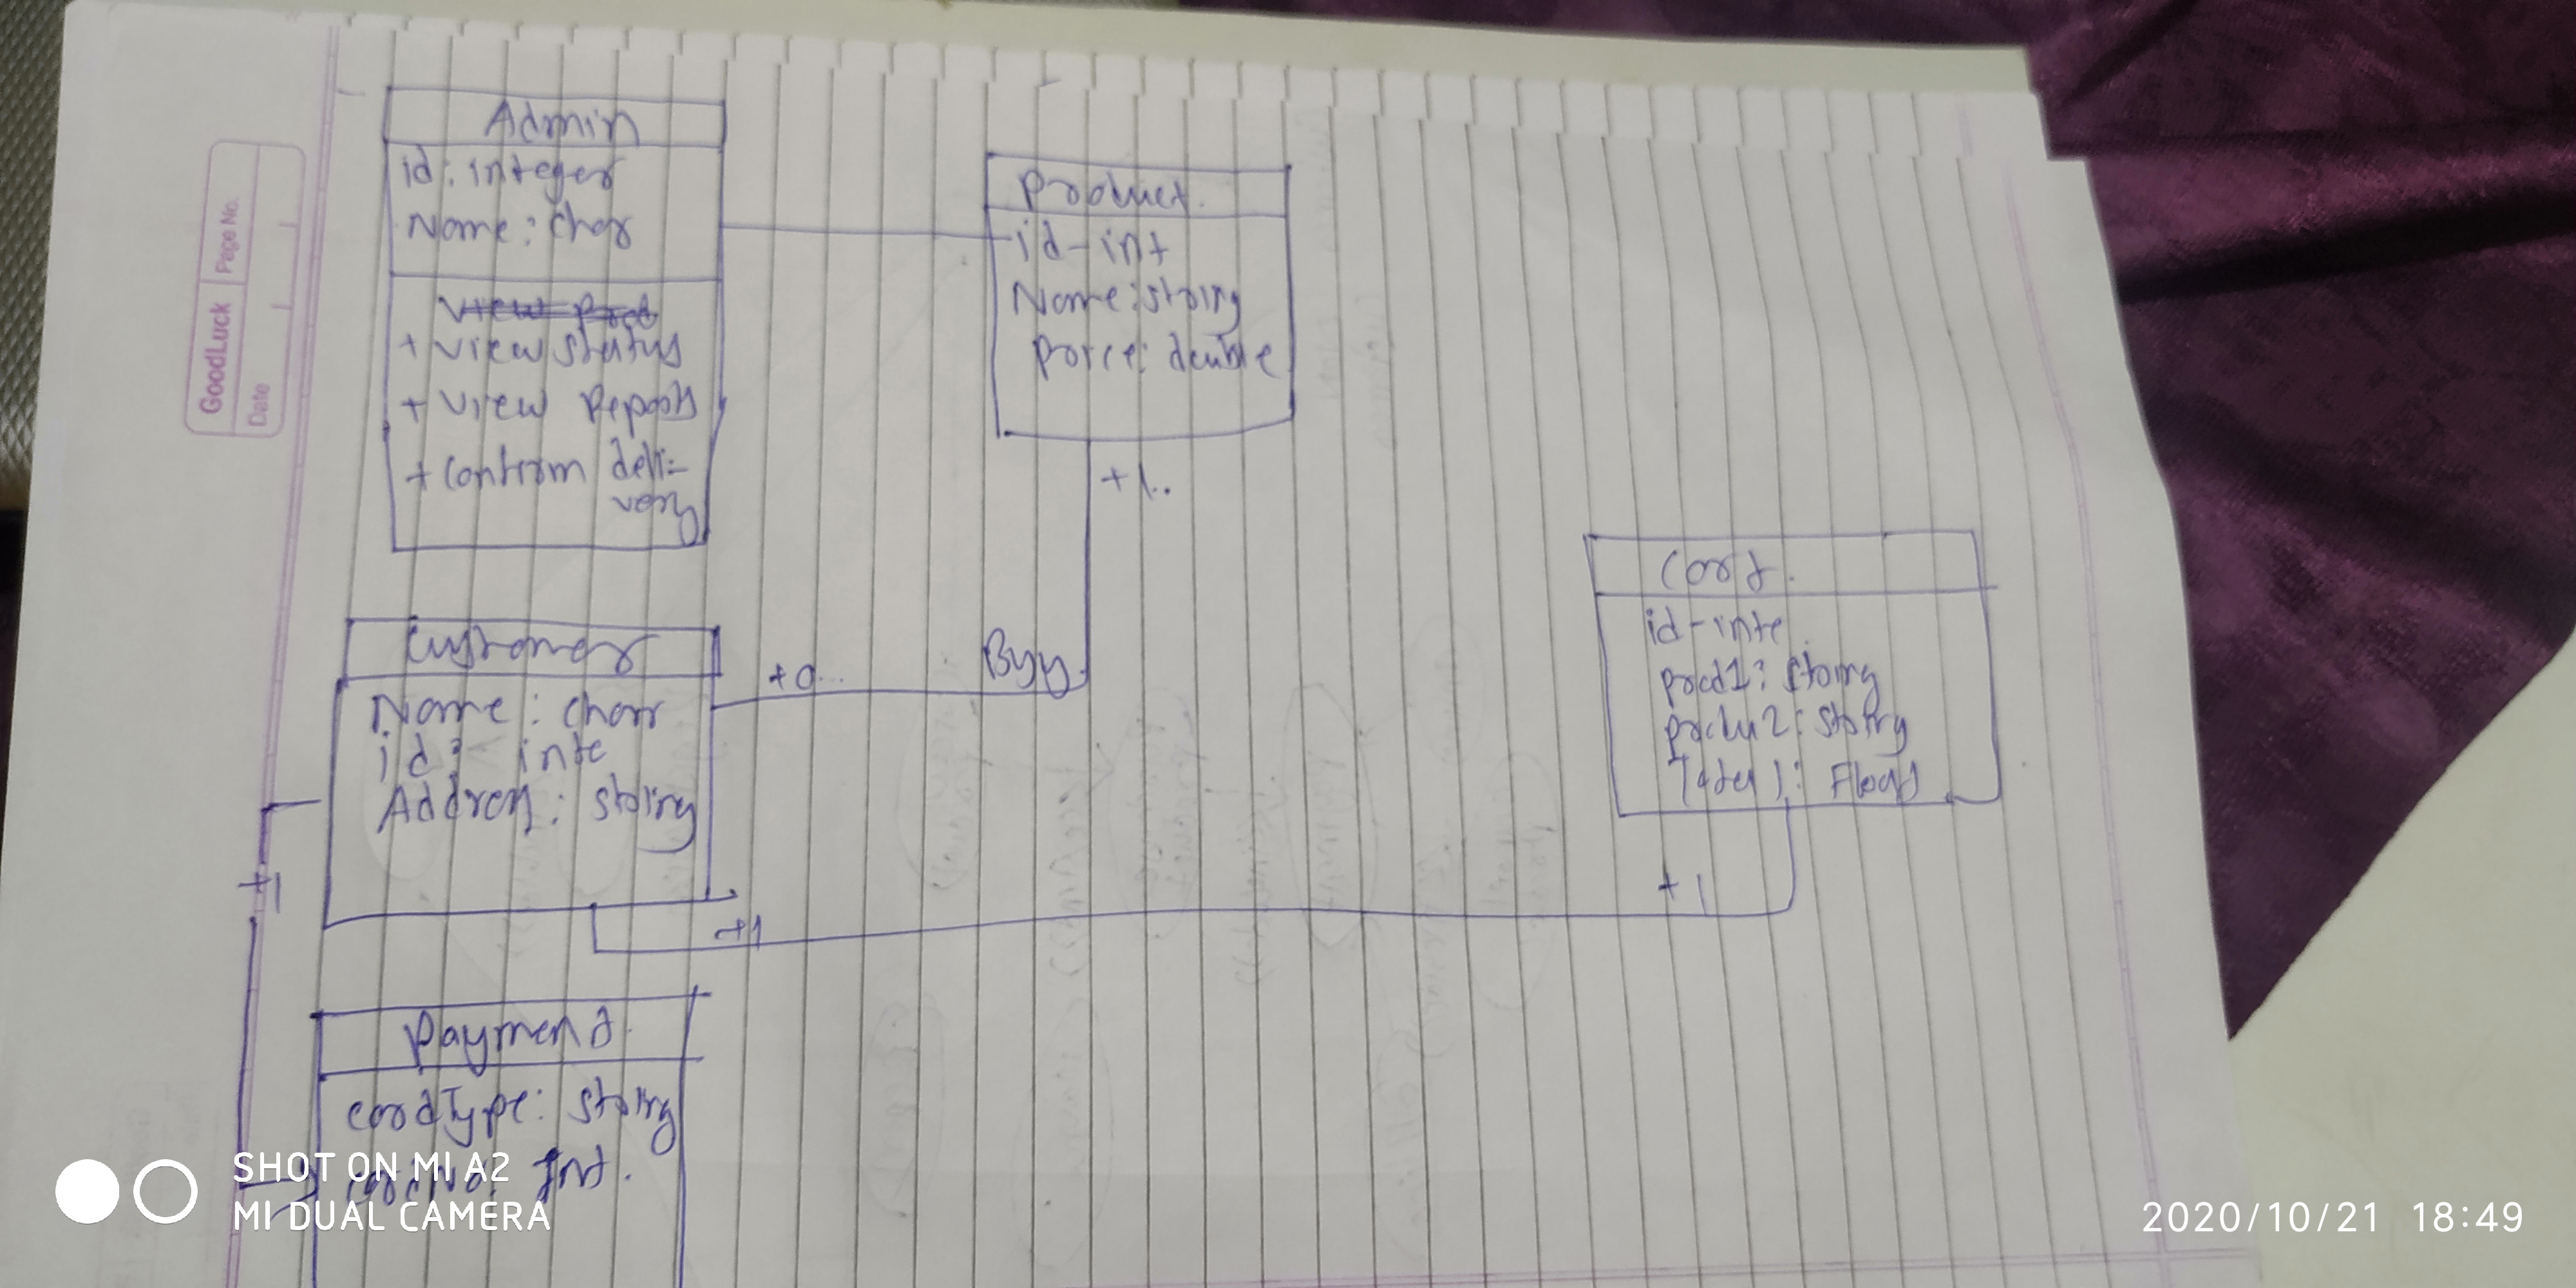 GoodLuck
Page No.
Date
Admin
id: integer
Name: char
+ view status
+ view Reports
+ Confirm deli-
very
Product.
id - int
Name: string
Price: double
+1..
Customer
Name: char
id: inte
Address: string
+0...
Byy
Cart.
id - inte
prod1: string
produ2: string
Total: Float
+1
+1
+1
Payment
cardType: string
cardNo: Int.
SHOT ON MI A2
MI DUAL CAMERA
2020/10/21 18:49